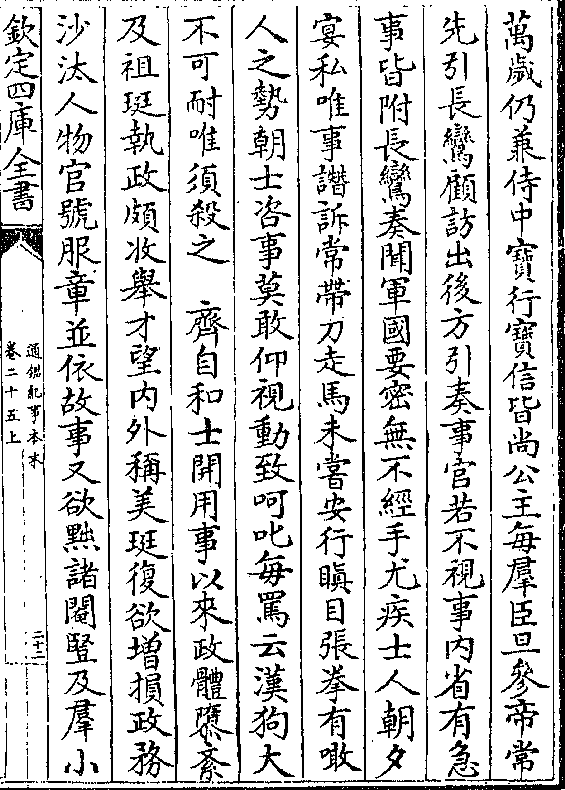 萬歲仍兼侍中寶行寶信皆尚公主每羣臣旦參帝常
先引長鸞顧訪出後方引奏事官若不視事内省有急
事皆附長鸞奏聞軍國要密無不經手尤疾士人朝夕
宴私唯事譖訴常帶刀走馬未嘗安行瞋目張拳有噉
人之勢朝士咨事莫敢仰視動致呵叱每罵云漢狗大
不可耐唯須殺之　齊自和士開用事以來政體隳紊
及祖珽執政頗收舉才望内外稱美珽復欲增損政務
沙汰人物官號服章並依故事又欲黜諸閹豎及羣小
欽定四庫全書
通鑑紀事本末
卷二十五上
二十二